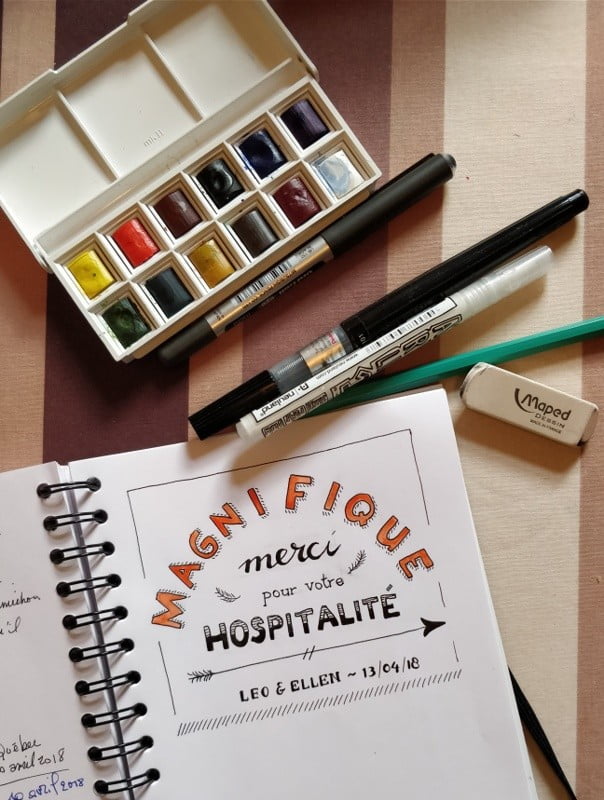 Maped
DESSIN
MADE IN FRANCE
neuland
MAGNIFIQUE
merci
pour votre
HOSPITALITÉ
LEO & ELLEN ~ 13/04/18
Québec
avril 2018
avril 2018